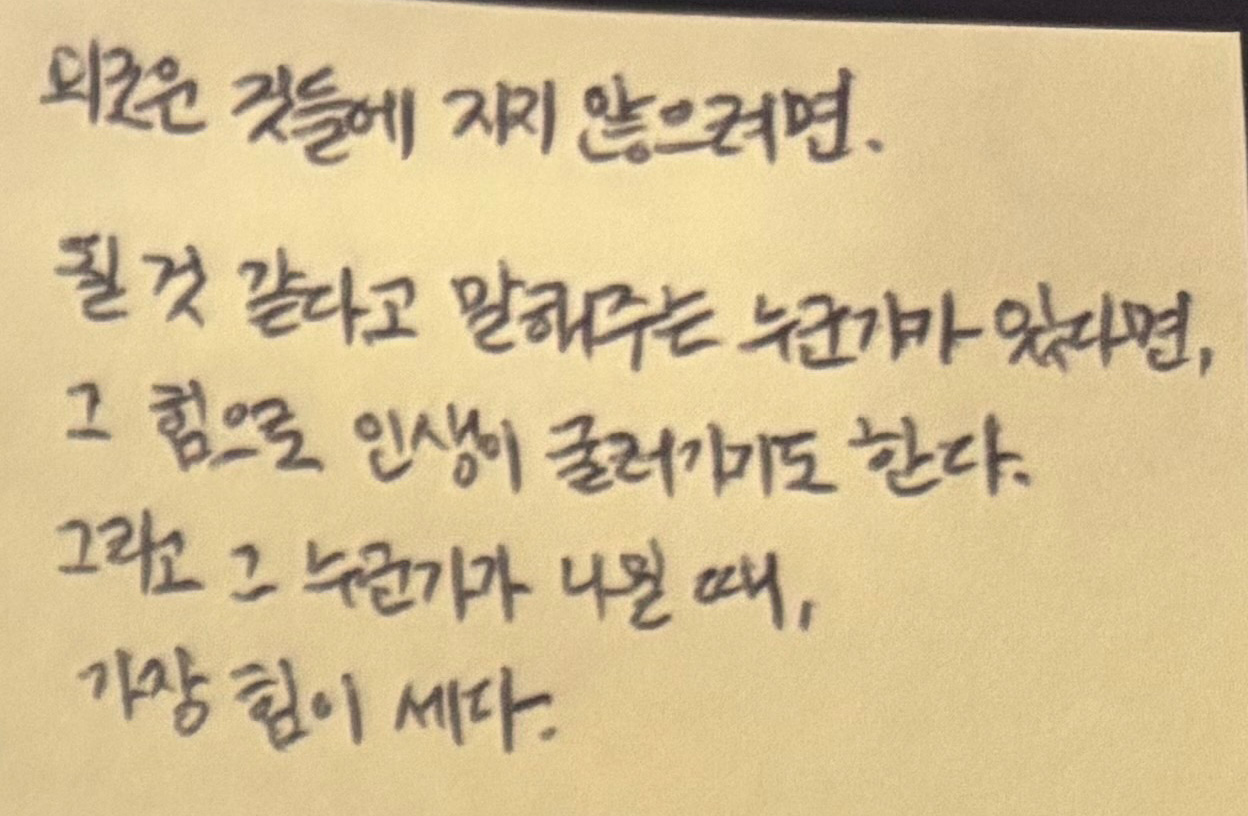 외로운 것들에 지지 않으려면.
될 것 같다고 말해주는 누군가가 있다면,
그 힘으로 인생이 굴러가기도 한다.
그리고 그 누군가가 나일 때,
가장 힘이 세다.